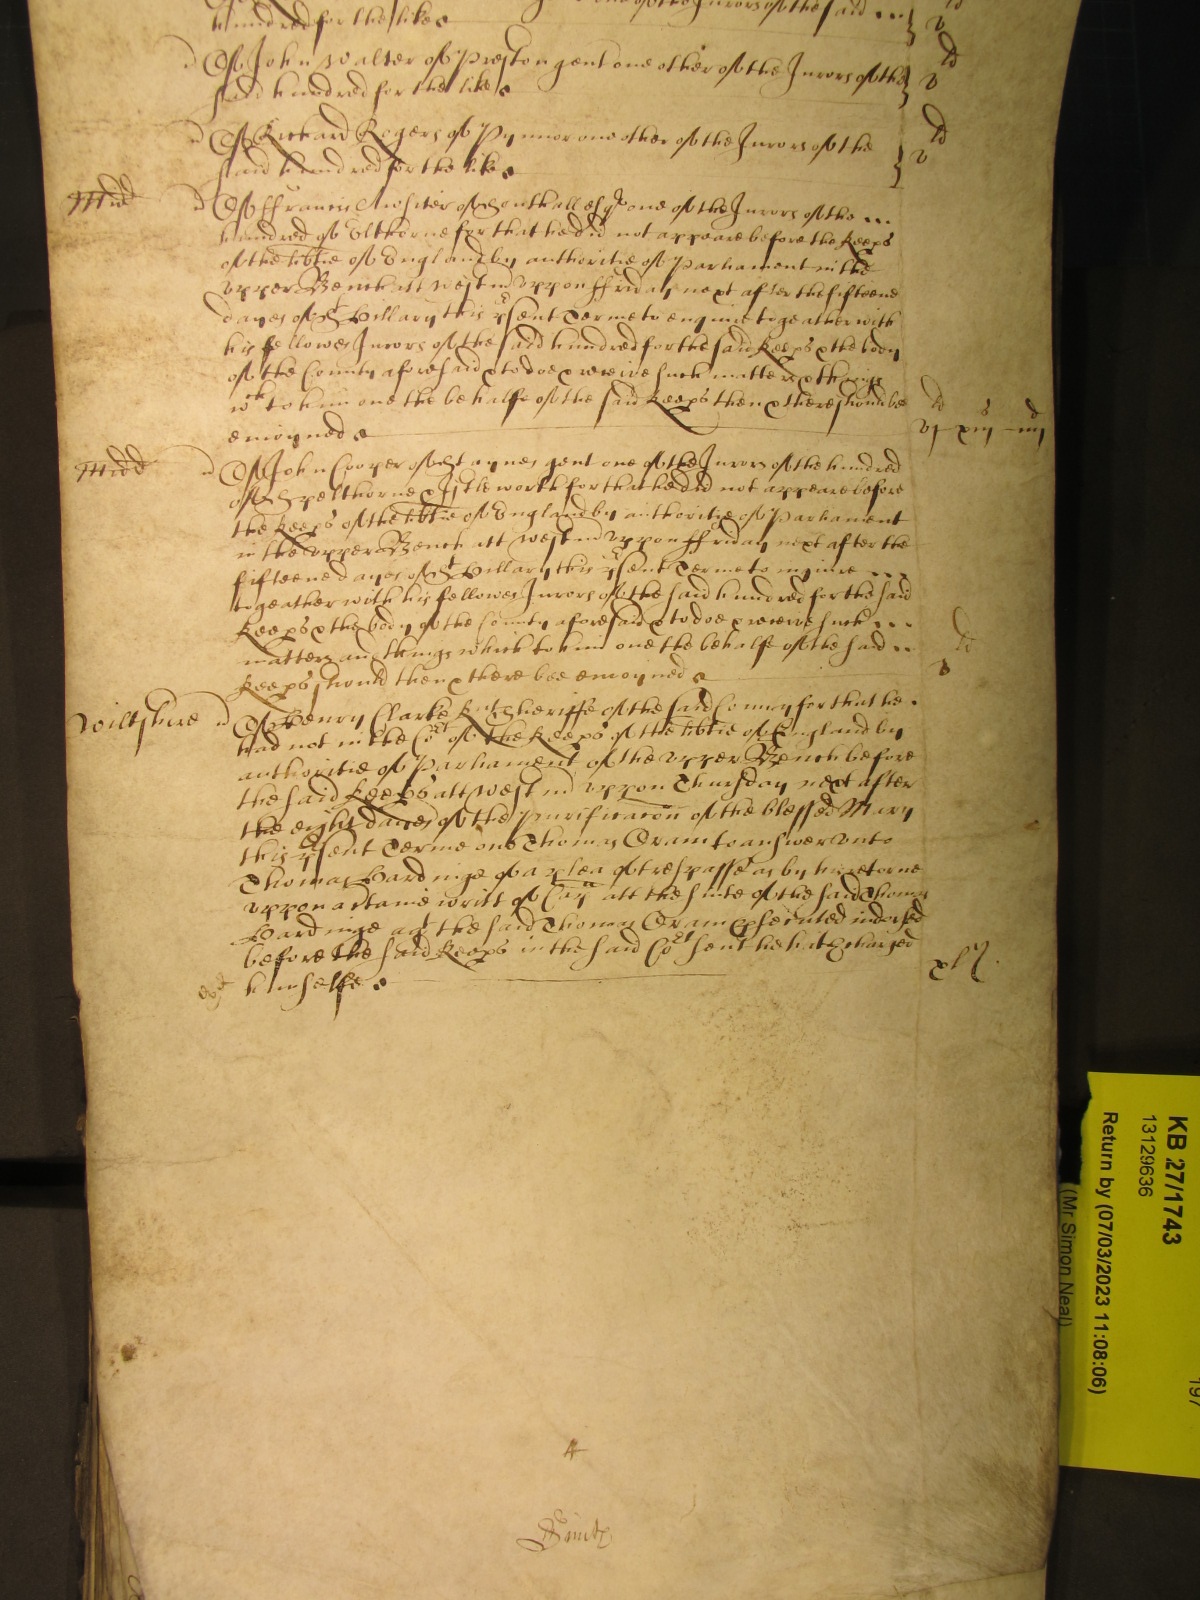 hundred for the like
Of John Walter of Preston gent one other of the Jurors of the
said hundred for the like
Of Richard Rogers of Pynnor one other of the Jurors of the
said hundred for the like
Midd Of ffrancis Awsiter of Southall esqr one of the Jurors of the
hundred of Elthorne for that hee did not appeare before the Keeps
of the libtie of England by authoritie of Parliament in the
upper Bench att westm uppon ffriday next after the fifteene
dayes of St Hillary this psent Terme to enquire togeather with
his fellowes Jurors of the said hundred for the said Keeps & the body
of the County aforesaid & to doe & receive such matters & things
wch to him one the behalfe of the said Keeps then & there should bee
enioyned
vj xiij iiij
Midd Of John Cooper of Staynes gent one of the Jurors of the hundred
of Spelthorne & Istleworth for that hee did not appeare before
the Keeps of the libtie of England by authoritie of Parliament
in the upper Bench att westm uppon ffriday next after the
fifteene dayes of St Hillary this psent Terme to inquire
togeather with his fellowes Jurors of the said hundred for the said
Keeps & the body of the County aforesaid & to doe & receive such
matters and things which to him one the behalfe of the said
Keeps should then & there bee enioyned
Wiltshire Of Henry Clarke Knt Sheriffe of the said County for that he
had not in the Cort of the Keeps of the libtie of England by
authoritie of Parliament of the upper Bench before
the said Keeps att westm uppon Thursday next after
the eight dayes of the purificacon of the blessed Mary
this psent Terme one Thomas Oram to answer unto
Thomas Hardinge of a plea of trespasse as by his retorne
uppon a certaine writt of Cap att the suite of the said Thomas
Hardinge agt the said Thomas Oram psecuted indorsed
before the said Keeps in the said Cort sent he hath charged
himselfe
xls
4
KB 27/1743
13129636
Return by (07/03/2023 11:08:06)
(Mr Simon Neal)
197